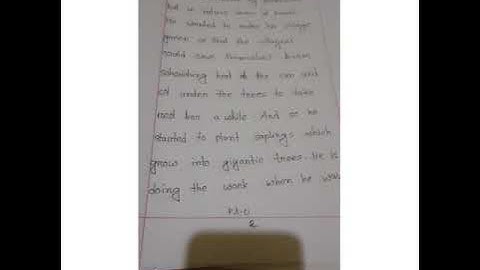 but in return
He wanted to make his village
green so that the villagers
could save themselves from
heat of the sun and
under the trees to take
rest for a while. And so he
started to plant saplings which
grow into gigantic trees. He is
doing the work when he was
2